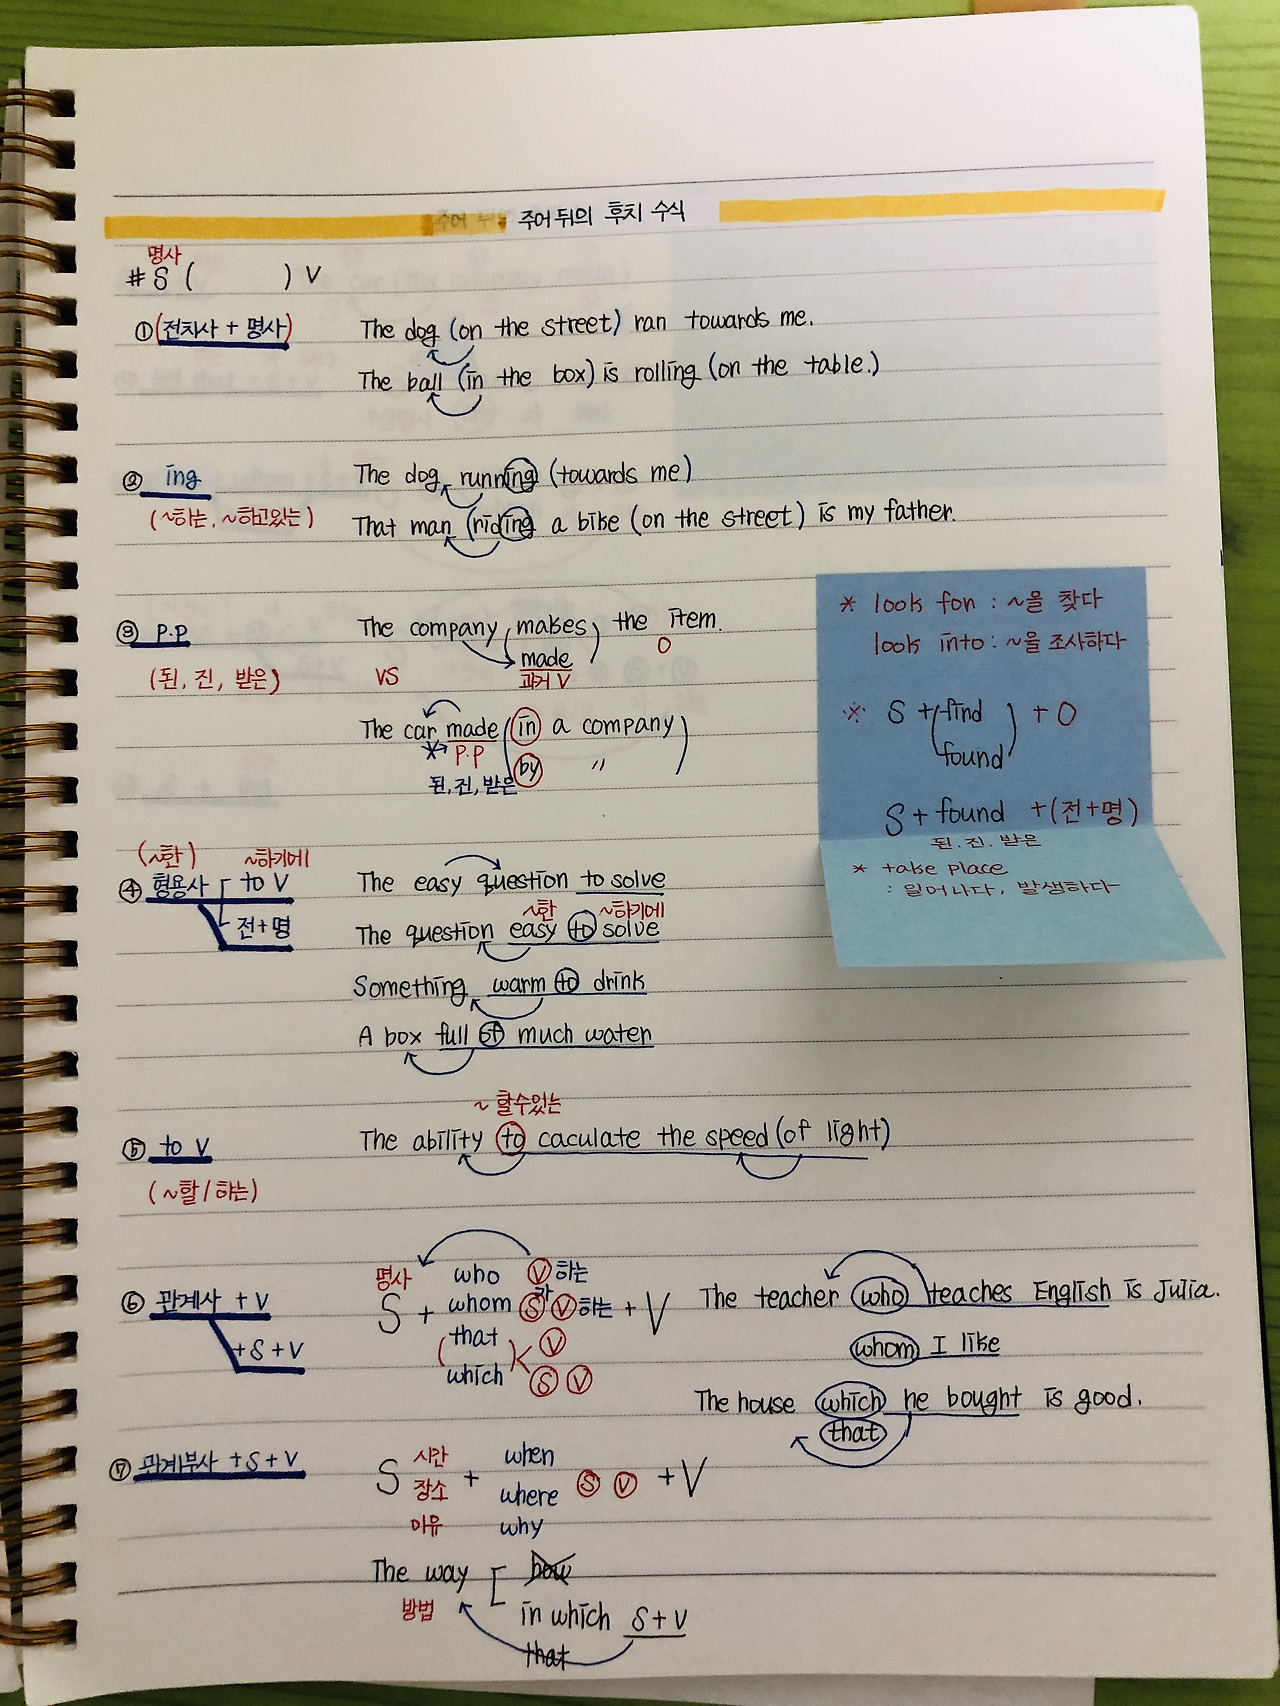 주어 뒤의 후치 수식
명사
# S (        ) V
① (전치사 + 명사)
The dog (on the street) ran towards me.
The ball (in the box) is rolling (on the table.)
② ing
(~하는, ~하고있는)
The dog running (towards me)
That man (riding a bike (on the street) is my father.
③ P.P
(된, 진, 받은)
The company (makes) the item.
made
O
과거 V
VS
The car made (in a company)
P.P
by 〃
된, 진, 받은
* look for : ~을 찾다
look into : ~을 조사하다
* S + (find) + O
found
S + found + (전+명)
된. 진. 받은
* take place
: 일어나다, 발생하다
(~한) ~하기에
④ 형용사 to V
전+명
The easy question to solve
~한 ~하기에
The question easy to solve
Something warm to drink
A box full of much water
⑤ to V
(~할/하는)
~ 할수있는
The ability to caculate the speed (of light)
⑥ 관계사 + V
+ S + V
명사
S + who V 하는
whom S가 V 하는 + V
(that V
which) < S V
The teacher who teaches English is Julia.
whom I like
The house which he bought is good.
that
⑦ 관계부사 + S + V
S 시간 + when
장소 where S V + V
이유 why
The way how
방법
in which S + V
that